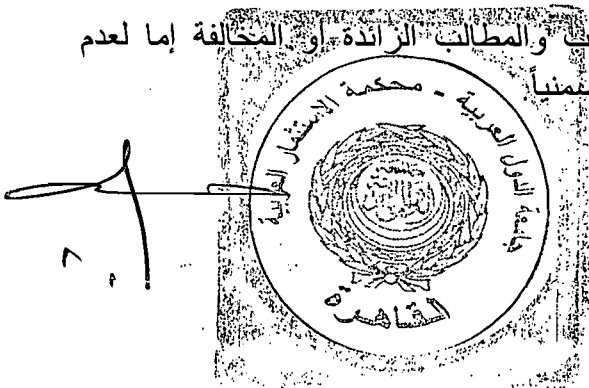 والمطالب الزائدة أو المخالفة إما لعدم
جامعة الدول العربية - محكمة الاستثمار العربية
القاهرة